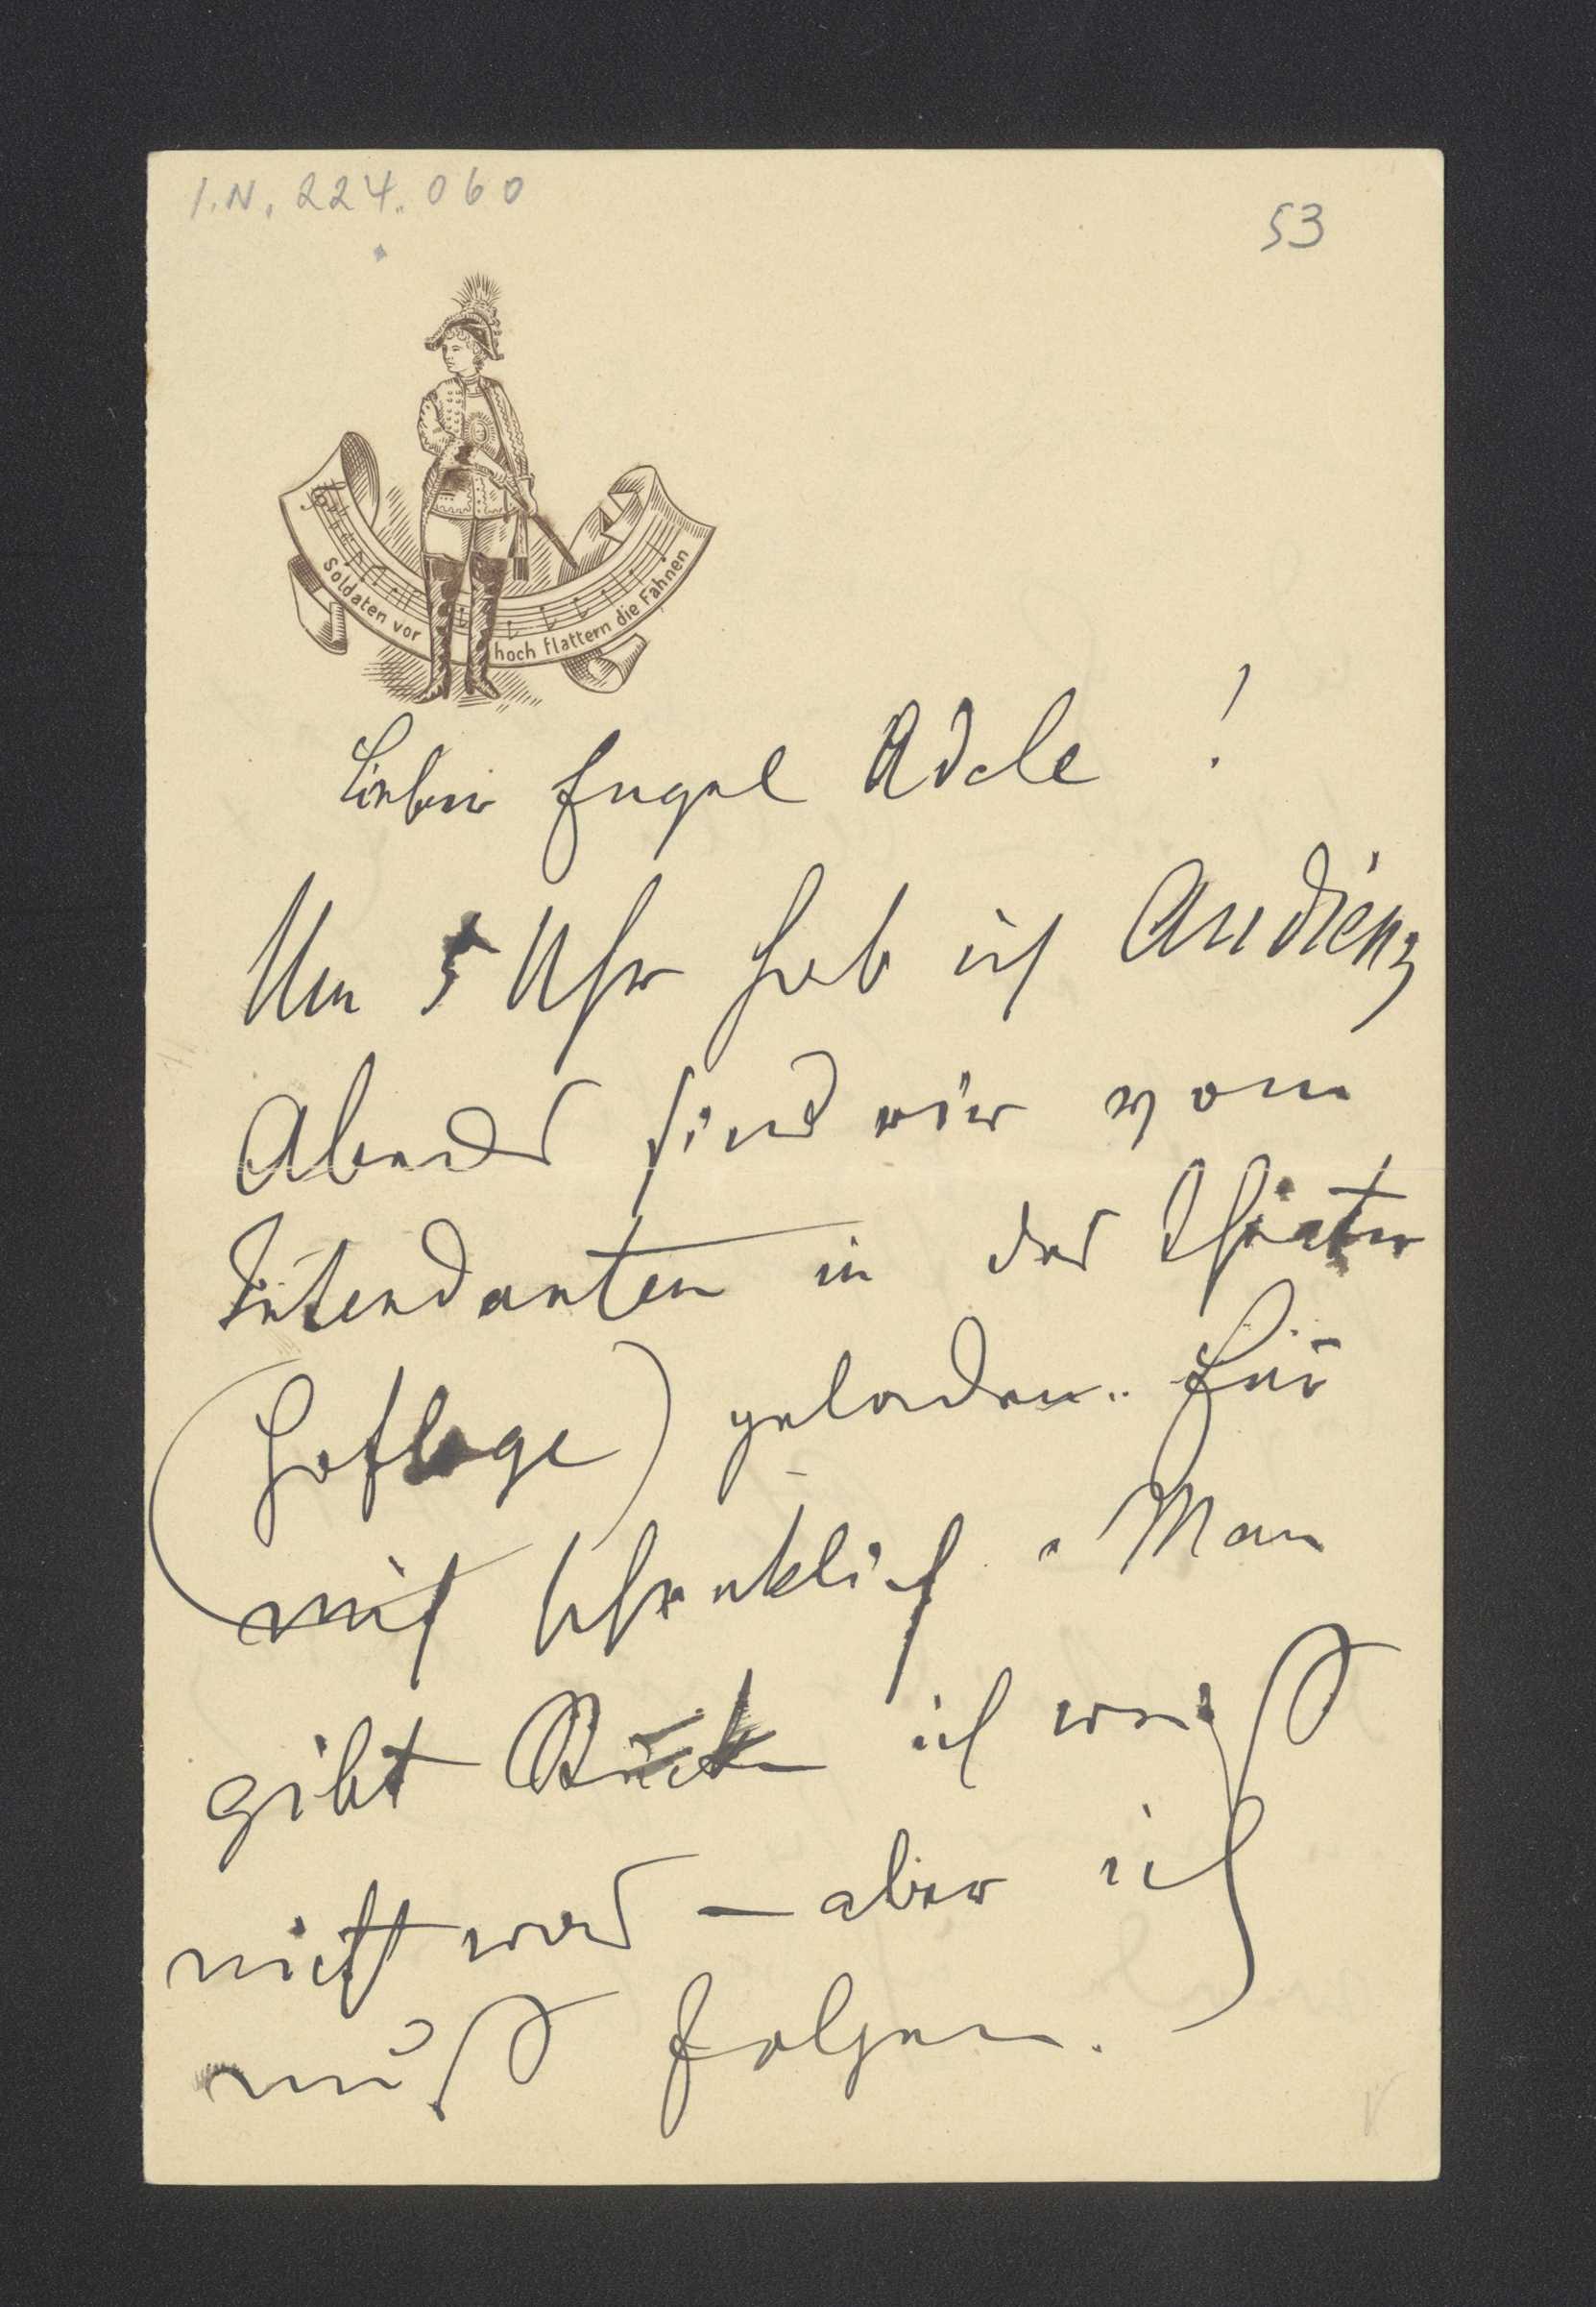 I.N. 224.060
53
Soldaten vor hoch flattern die Fahnen
Lieber Engel Adele !
Um 5 Uhr hab ich Audienz
Abends sind wir vom
Intendanten in das Theater
(Hofloge) geladen. Für
mich schrecklich. Man
gibt ich weiß
nicht was – aber ich
muß folgen.